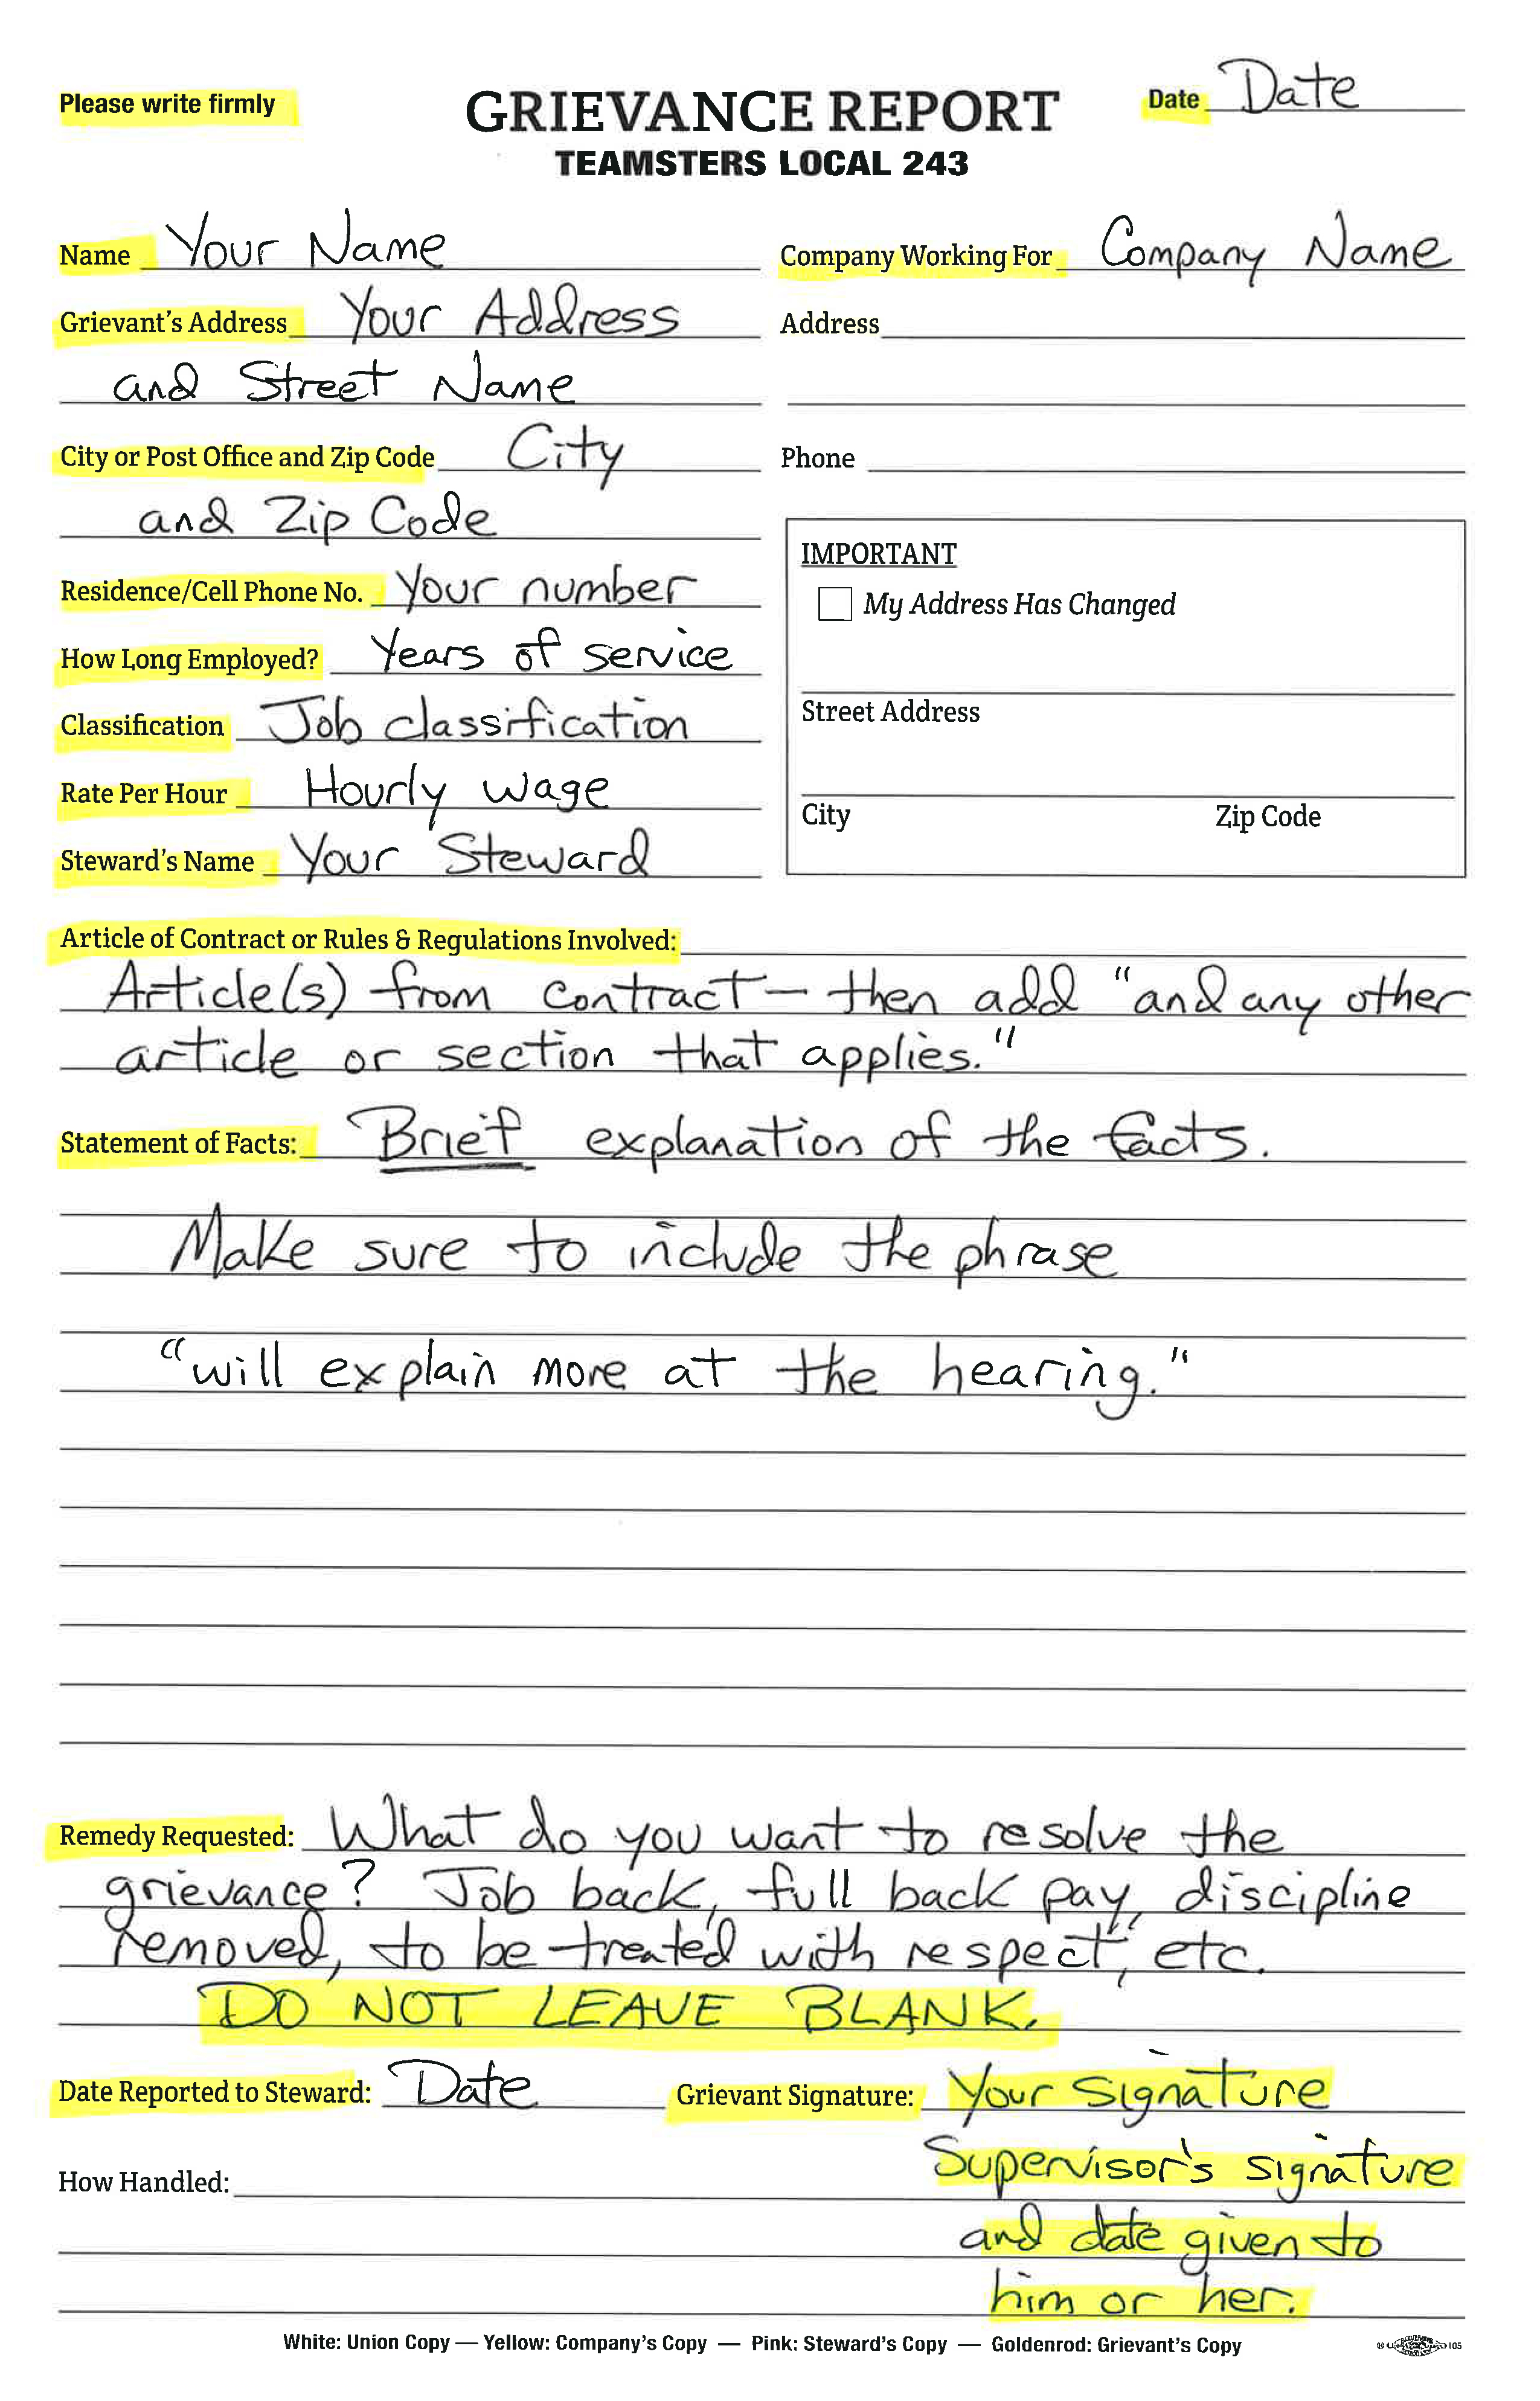 Please write firmly
GRIEVANCE REPORT
Date Date
TEAMSTERS LOCAL 243
Name Your Name
Company Working For Company Name
Grievant's Address Your Address
Address
and Street Name
City or Post Office and Zip Code City
Phone
and Zip Code
IMPORTANT
Residence/Cell Phone No. Your number
My Address Has Changed
How Long Employed? Years of service
Street Address
Classification Job classification
Rate Per Hour Hourly wage
City Zip Code
Steward's Name Your Steward
Article of Contract or Rules & Regulations Involved:
Article(s) from contract - then add "and any other
article or section that applies."
Statement of Facts: Brief explanation of the facts.
Make sure to include the phrase
"will explain more at the hearing."
Remedy Requested: What do you want to resolve the
grievance? Job back, full back pay, discipline
removed, "to be treated with respect", etc.
DO NOT LEAVE BLANK.
Date Reported to Steward: Date Grievant Signature: Your Signature
Supervisor's signature
How Handled:
and date given to
him or her.
White: Union Copy — Yellow: Company's Copy — Pink: Steward's Copy — Goldenrod: Grievant's Copy
105